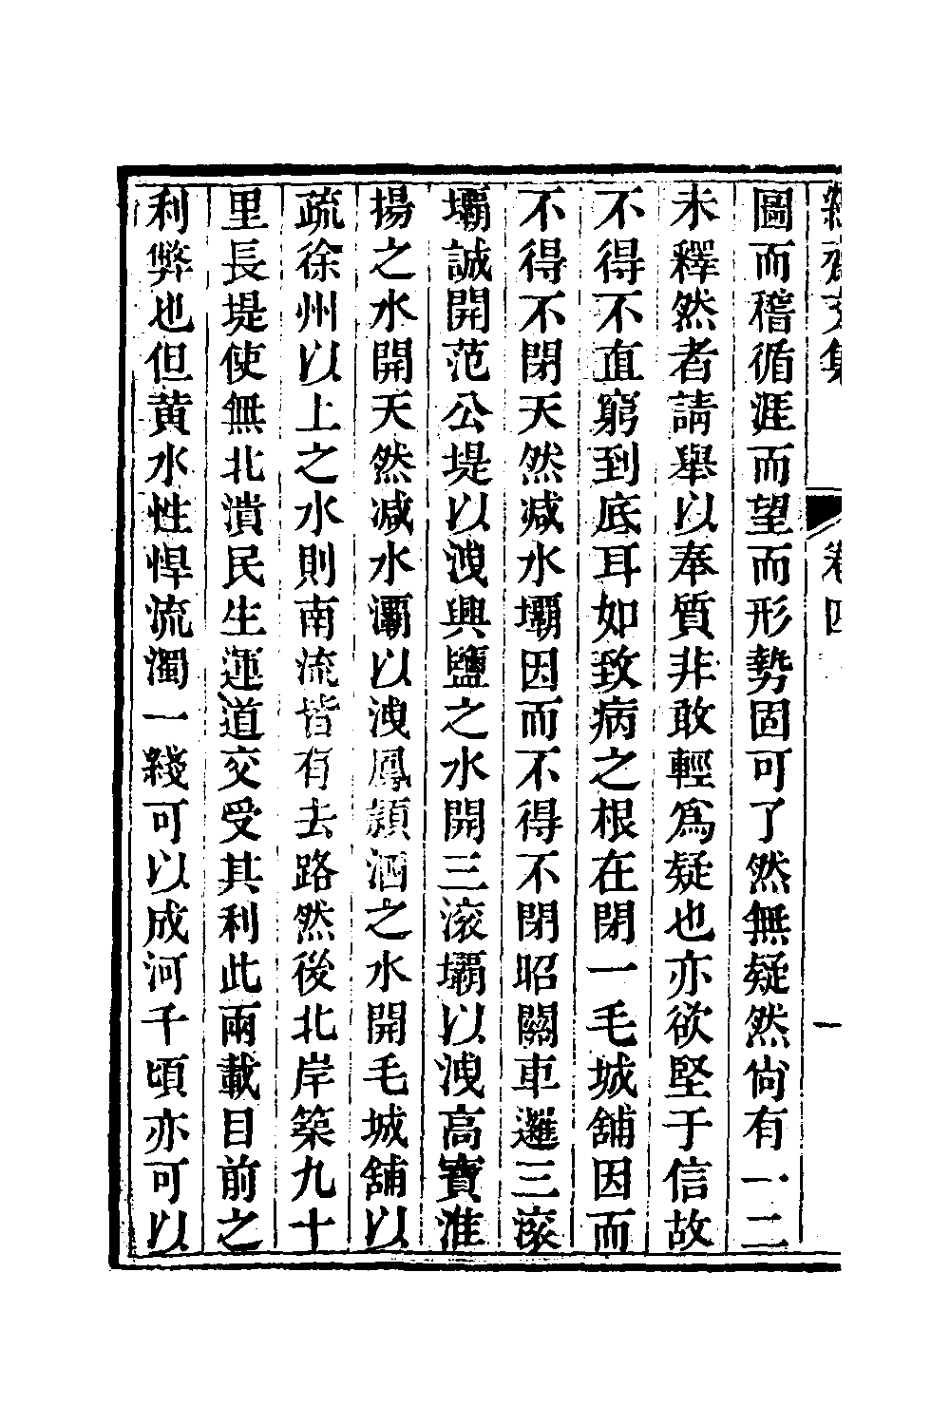 文集 卷四 一
圖而稽循涯而望而形勢固可了然無疑然尙有一二
未釋然者請舉以奉質非敢輕爲疑也亦欲堅于信故
不得不直窮到底耳如致病之根在閉一毛城舖因而
不得不閉天然减水壩因而不得不閉昭關車邏三滚
壩誠開范公堤以洩興鹽之水開三滚壩以洩高寶淮
揚之水開天然减水灞以洩鳳潁泗之水開毛城舖以
疏徐州以上之水則南流皆有去路然後北岸築九十
里長堤使無北潰民生運道交受其利此兩載目前之
利弊也但黄水性悍流濁一綫可以成河千頃亦可以